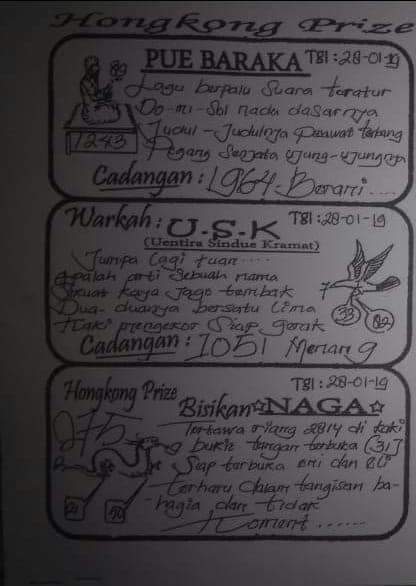 Hongkong Prize
PUE BARAKA Tgl : 28-01-19
Lagu berpalu Suara teratur
Do-mi-Sol nada dasarnya
Judul - Judulnya Pesawat terbang
1243
Pegang Senjata ujung-ujungnya
Cadangan : 1964 Berani ....
Warkah : U-S-K Tgl : 28-01-19
(Uentira Sindue Kramat)
Jumpa lagi tuan ....
apalah arti Sebuah nama
kaya Jago tembak 7
Dua-duanya bersatu lima
33 02
mengekor Siap gerak
Cadangan : 1051 Menang
Hongkong Prize Tgl : 28-01-19
Bisikan NAGA
275
Tertawa riang 2814 di kaki
bukit tangan terbuka (31)
Siap terbuka dan
terharu dalam tangisan ba-
hagia dan tidak
Koment ......